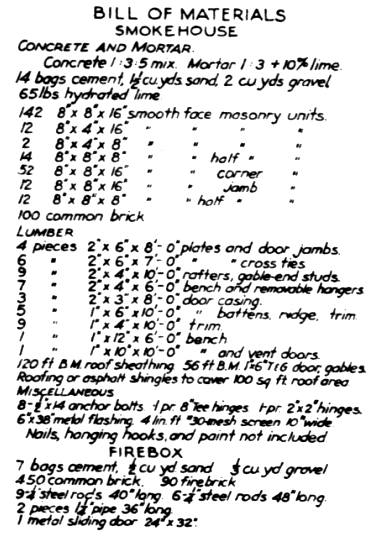 BILL OF MATERIALS
SMOKEHOUSE
CONCRETE AND MORTAR.
Concrete 1:3:5 mix. Mortar 1:3 + 10% lime.
14 bags cement, 1½ cu. yds. sand, 2 cu yds gravel
65 lbs hydrated lime
142 8"x 8"x 16" smooth face masonry units.
12 8"x 4"x 16" " " "
2 8"x 4"x 8" " " "
14 8"x 8"x 8" " " half " "
52 8"x 8"x 16" " " corner "
12 8"x 8"x 16" " " jamb "
12 8"x 8"x 8" " " half " "
100 common brick
LUMBER
4 pieces 2"x 6"x 8'-0" plates and door jambs.
6 " 2"x 6"x 7'-0" " " cross ties
9 " 2"x 4"x 10'-0" rafters, gable-end studs.
7 " 2"x 4"x 6'-0" bench and removable hangers
3 " 2"x 3"x 8'-0" door casing.
5 " 1"x 6"x 10'-0" " battens, ridge, trim
9 " 1"x 4"x 10'-0" trim
1 " 1"x 12"x 6'-0" bench
1 " 1"x 10"x 10'-0" " and vent doors.
120 ft B.M. roof sheathing 56 ft B.M. 1"x6" T&G door, gables.
Roofing or asphalt shingles to cover 100 sq ft. roof area
MISCELLANEOUS
8-½"x14 anchor bolts 1 pr. 8" Tee hinges 1-pr 2"x2" hinges.
6"x38" metal flashing. 4 lin. ft #30-mesh screen 10" wide
Nails, hanging hooks, and paint not included
FIREBOX
7 bags cement, ½ cu yd sand ⅓ cu yd gravel
450 common brick. 90 firebrick
9-¼ steel rods 40" long. 6-¼ steel rods 48" long.
2 pieces 1¼" pipe 36" long.
1 metal sliding door 24"x 32".